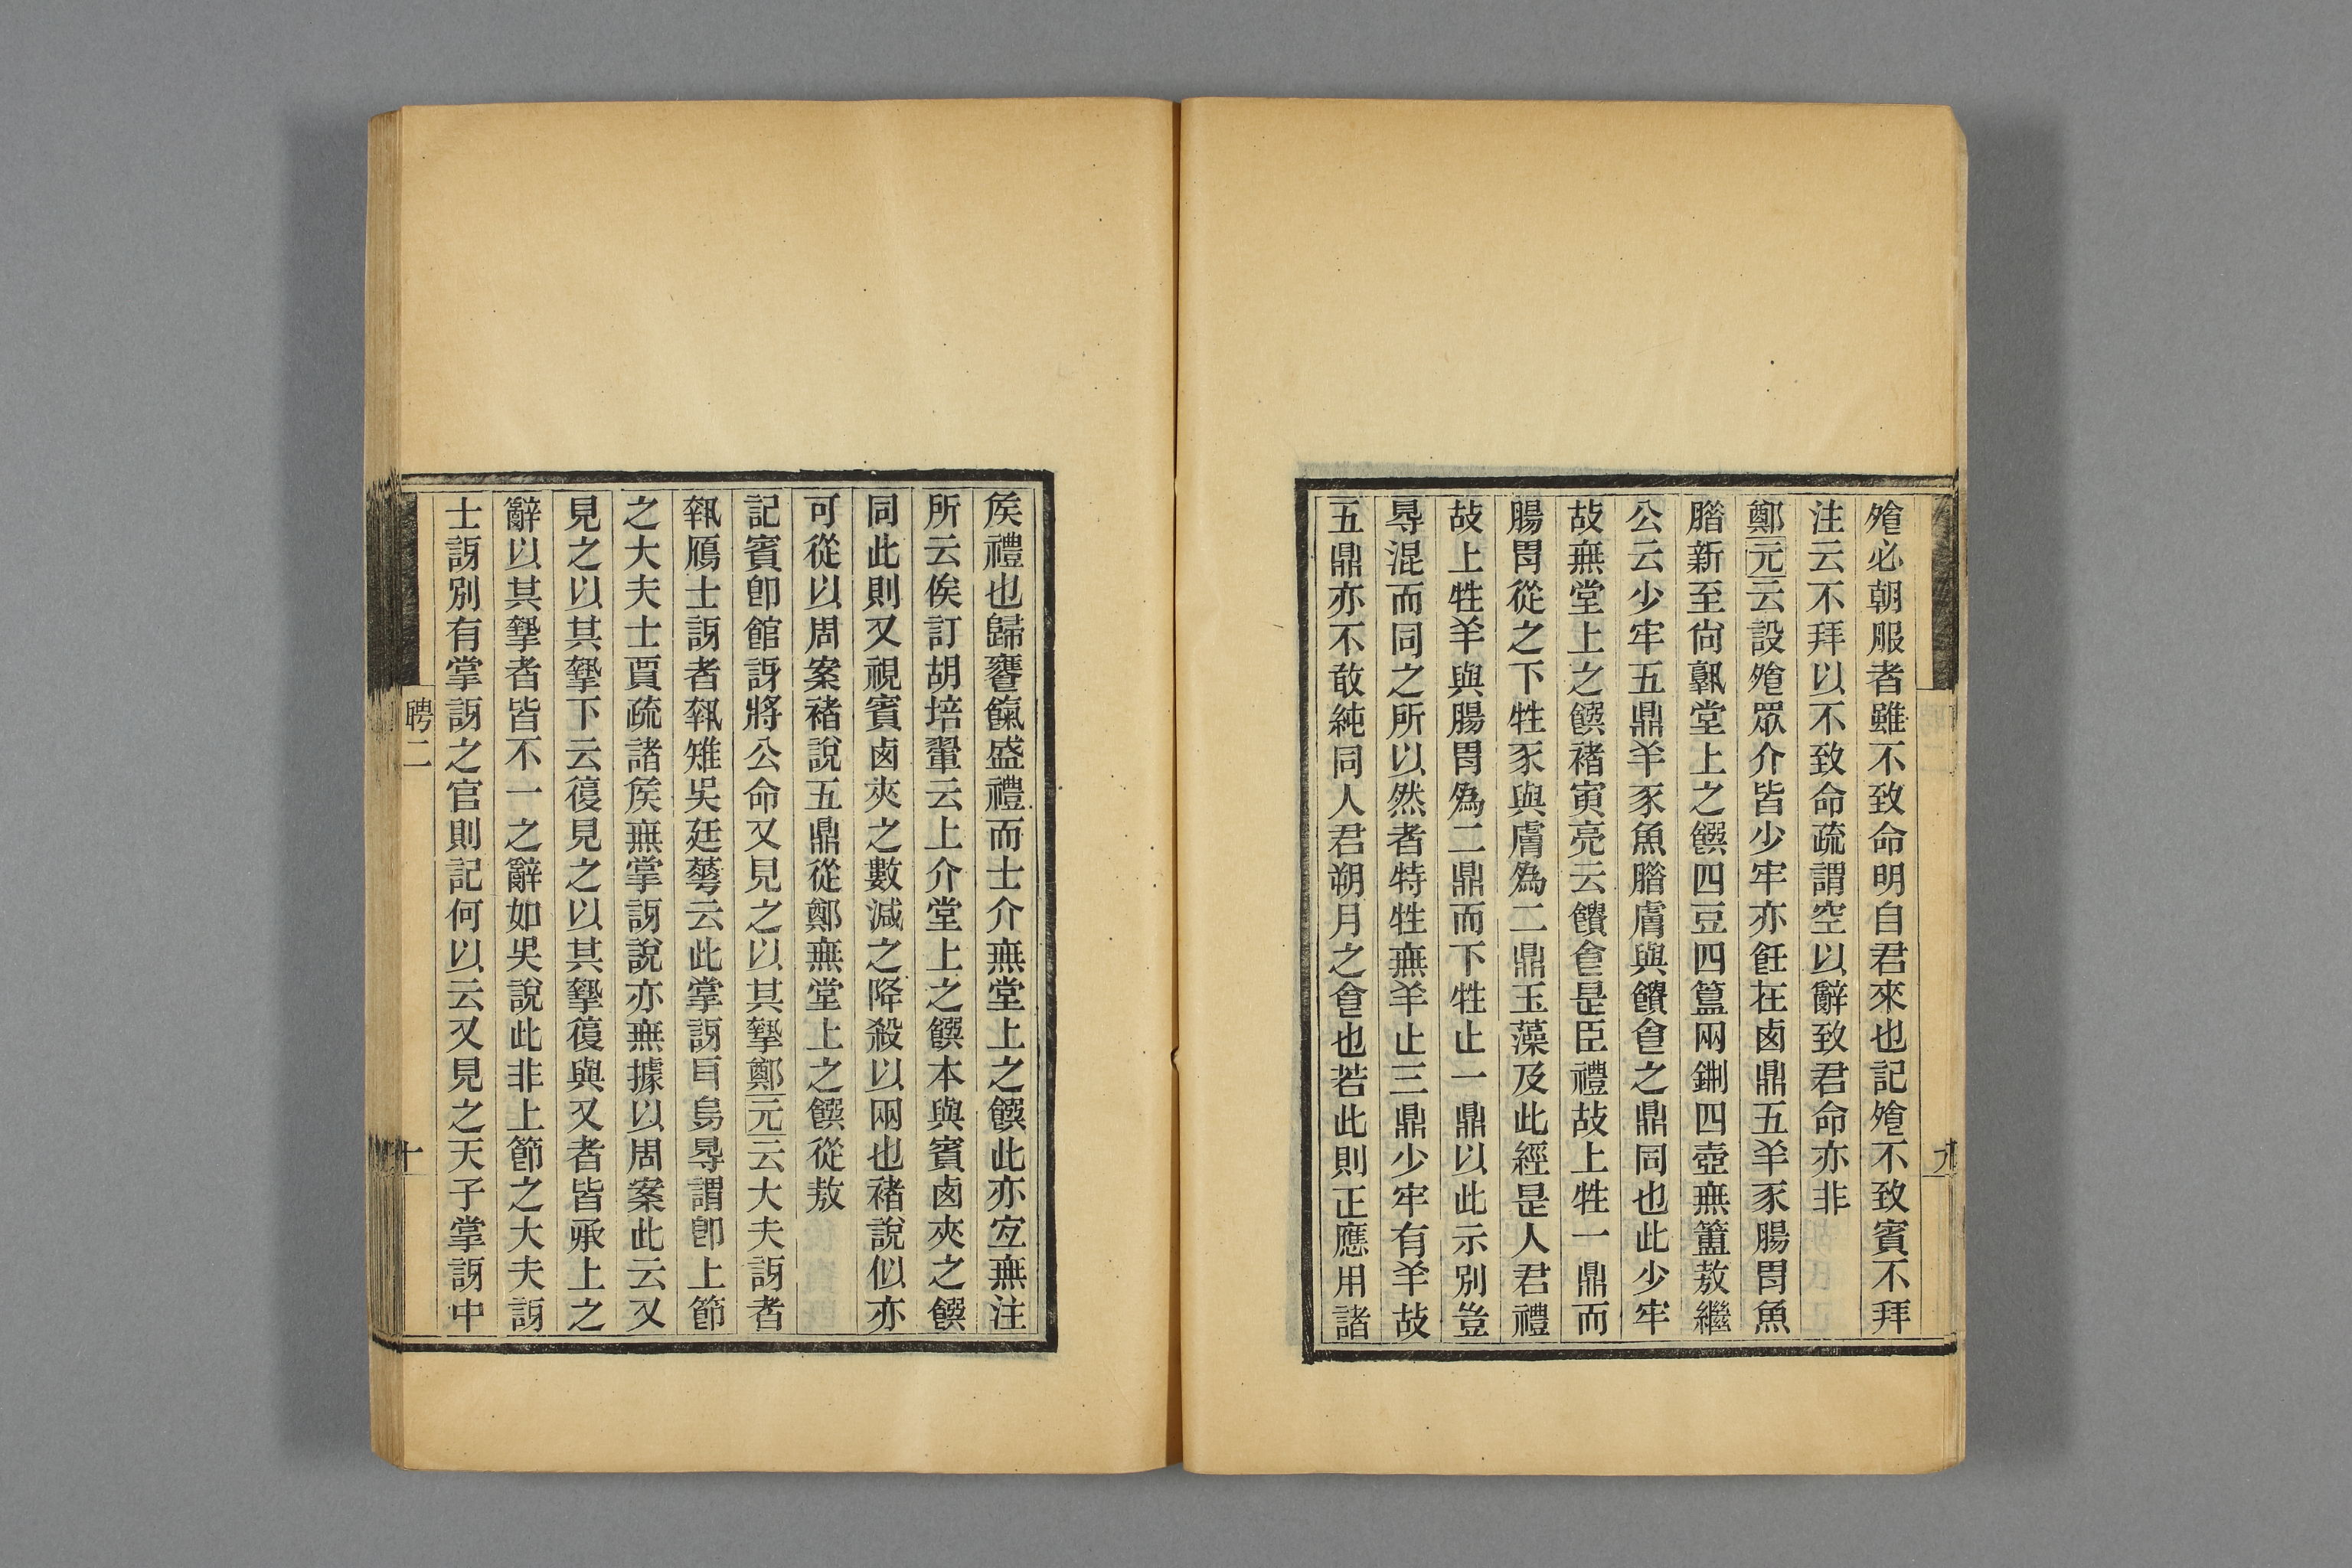 飱必朝服者雖不致命明自君來也記飱不致賓不拜
注云不拜以不致命疏謂空以辭致君命亦非
鄭元云設飱眾介皆少牢亦飪在西鼎五羊豕腸胃魚
腊新至尙孰堂上之饌四豆四簋兩鉶四壺無簠敖繼
公云少牢五鼎羊豕魚腊膚與饋食之鼎同也此少牢
故無堂上之饌褚寅亮云饋食是臣禮故上牲一鼎而
腸胃從之下牲豕與膚爲二鼎玉藻及此經是人君禮
故上牲羊與腸胃爲二鼎而下牲止一鼎以此示別豈
㝵混而同之所以然者特牲無羊止三鼎少牢有羊故
五鼎亦不敢純同人君朔月之食也若此則正應用諸
九
矦禮也歸饔餼盛禮而士介無堂上之饌此亦宐無注
所云俟訂胡培翬云上介堂上之饌本與賓西夾之饌
同此則又視賓西夾之數減之降殺以兩也褚說似亦
可從以周案褚說五鼎從鄭無堂上之饌從敖
記賓卽館訝將公命又見之以其摯鄭元云大夫訝者
執鴈士訝者執雉吳廷華云此掌訝耳烏㝵謂卽上節
之大夫士賈疏諸矦無掌訝說亦無據以周案此云又
見之以其摯下云復見之以其摯復與又者皆承上之
辭以其摯者皆不一之辭如吳說此非上節之大夫訝
士訝別有掌訝之官則記何以云又見之天子掌訝中
聘二
十